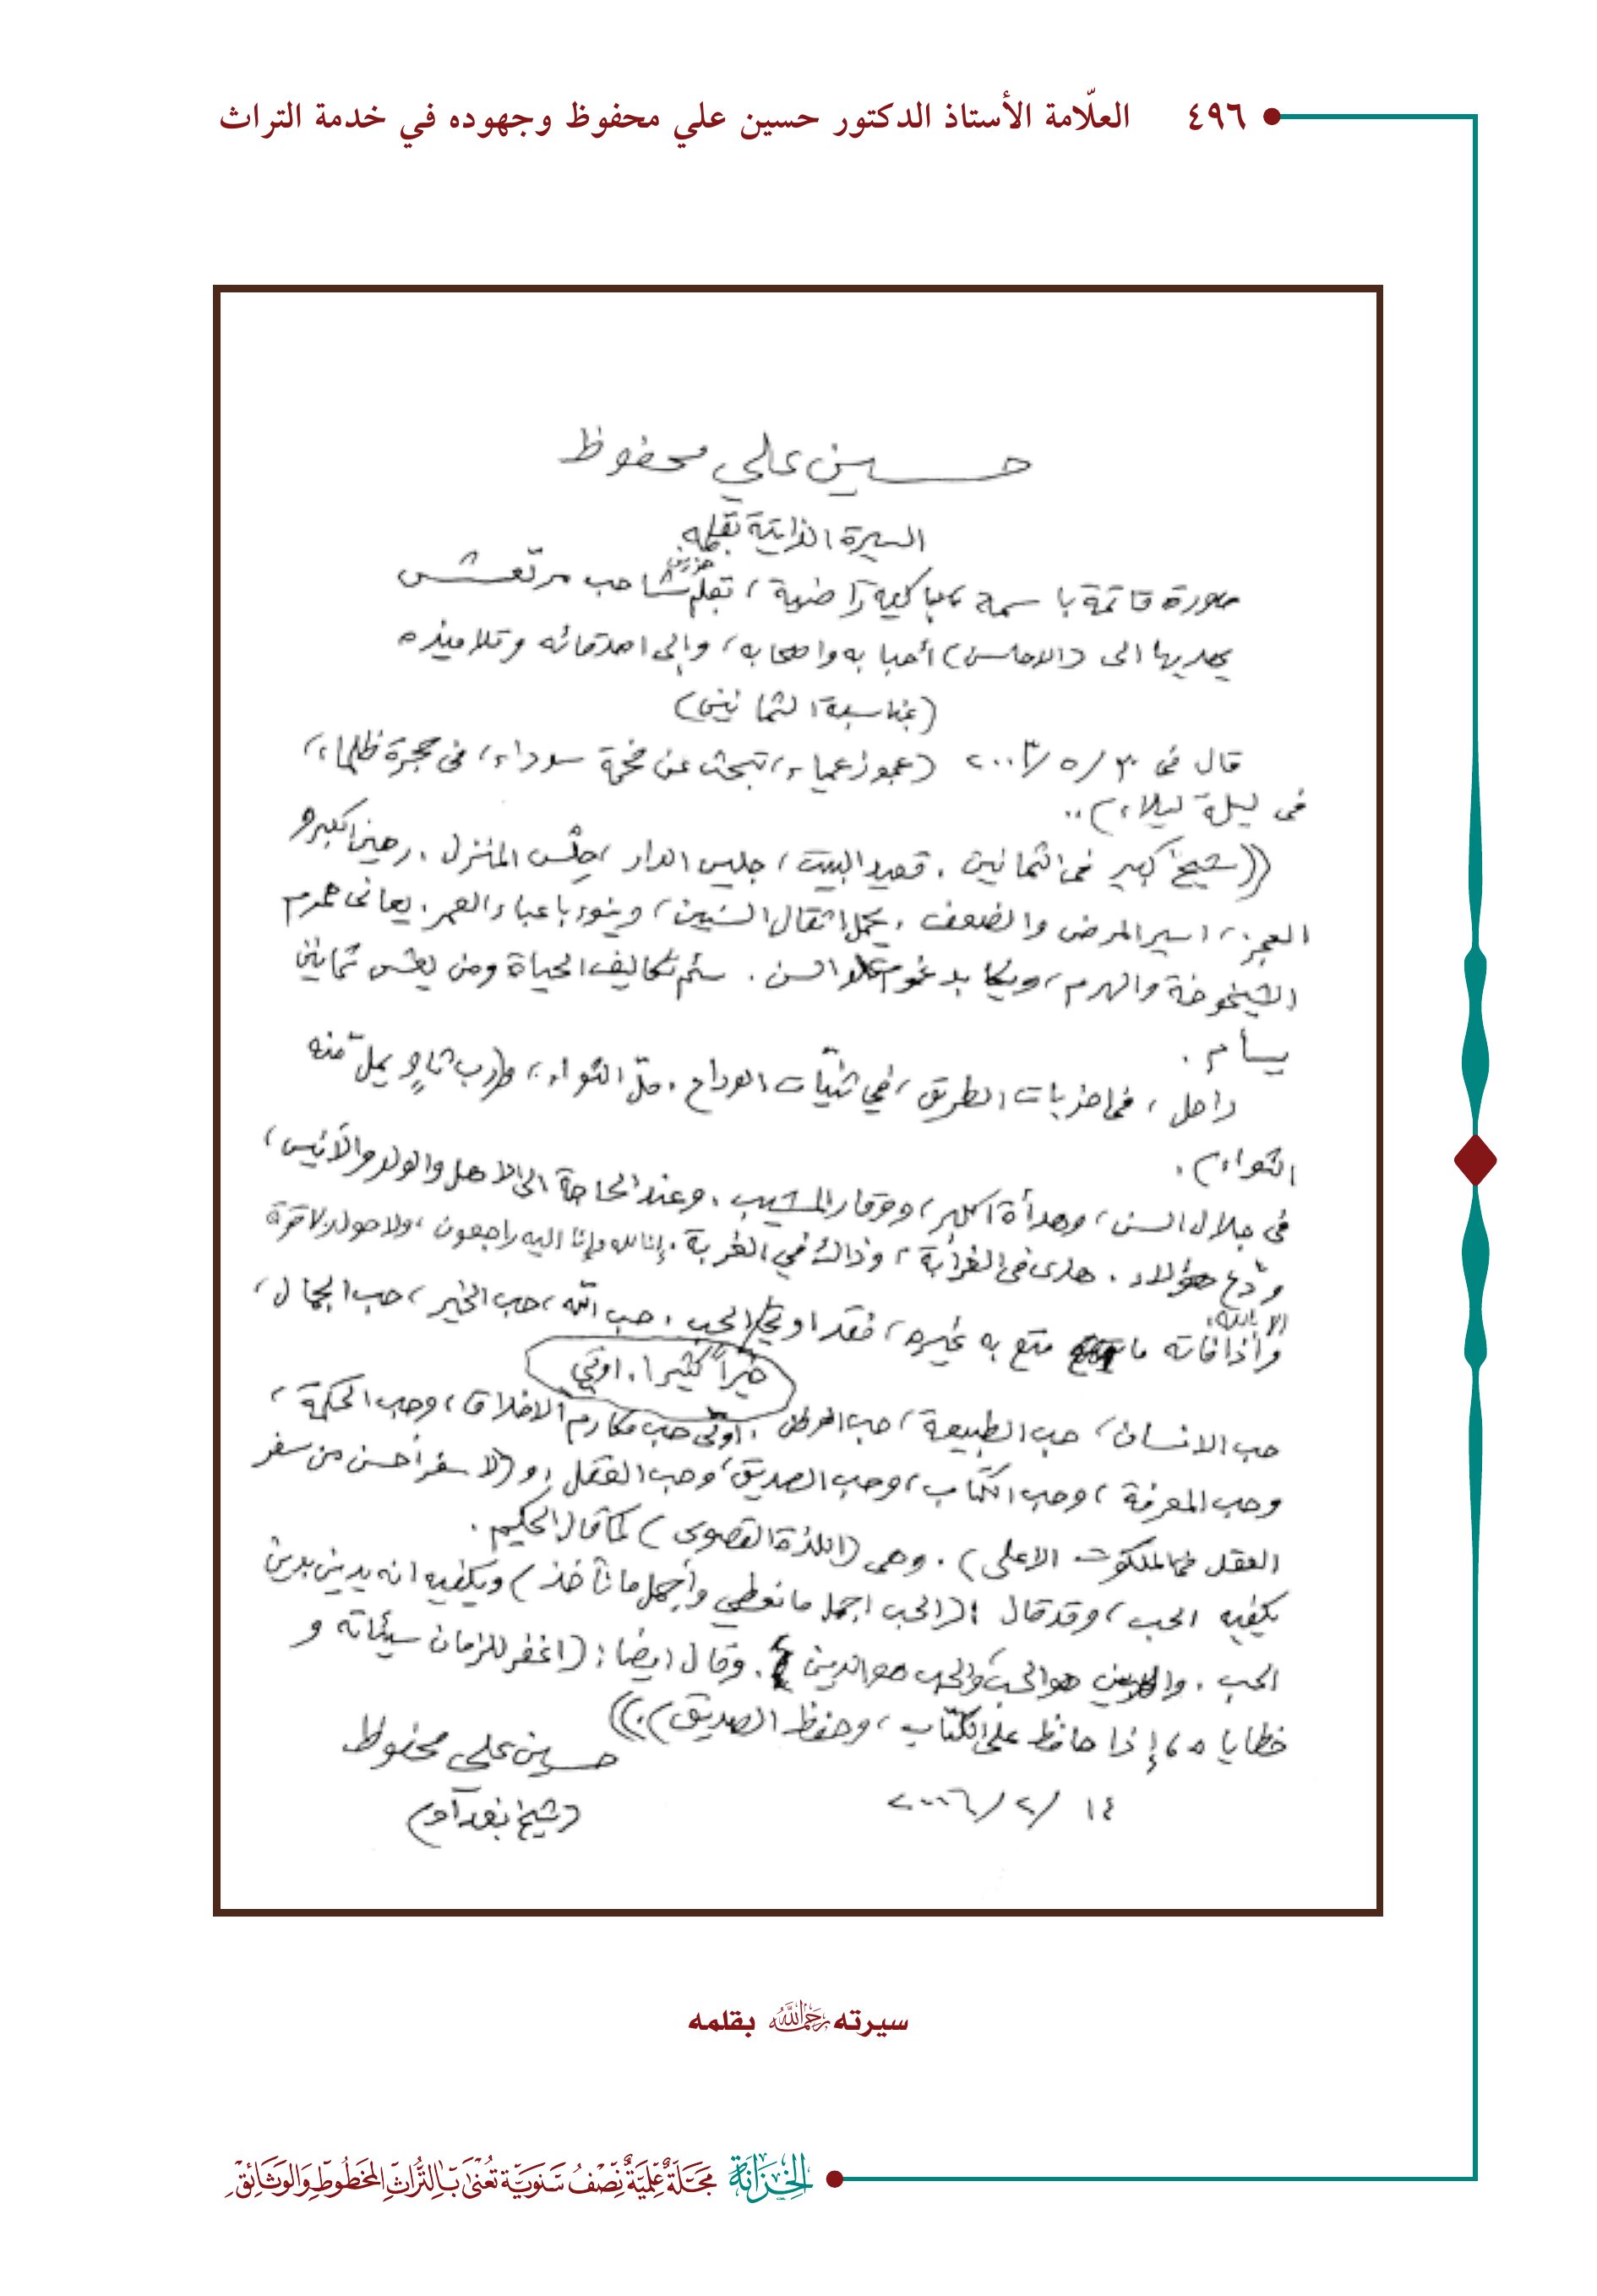 ٤٩٦ العلّامة الأستاذ الدكتور حسين علي محفوظ وجهوده في خدمة التراث
حسين علي محفوظ
السيرة الذاتية بقلمه
صورة قاتمة باسمة باكية راضية، بقلم شاحب مرتعش
حزين
يهديها الى (الاحاسن) أحبابه واصحابه، وإلى اصدقائه وتلاميذه
(بمناسبة الثمانين)
قال في ٣٠/٥/٢٠٠٣ (عجوز عمياء، تبحث عن فحمة سوداء، في حجرة ظلماء،
في ليلة ليلاء)..
((شيخ كبير في الثمانين. قعيد البيت، جليس الدار، حلس المنزل. رهين الكبر و
العجز، اسير المرض والضعف. يحمل اثقال السنين، وينوء باعباء العمر. يعاني همرم
الشيخوخة والهرم، ويكابد غموم السن. سئم تكاليف الحياة ومن يعش ثمانين
يسأم.
راحل، في اخريات الطريق، في ثنيّات الوداع. ملّ الثواء، و(رب ثاوٍ يملّ منه
الثواء).
في جلال السن، وهدأة الكبر، ووقار المشيب. وعند الحاجة الى الاهل والولد والأنيس،
ودّع هؤلاء. هذى في الغرابة، وذاك في الغربة. إنا لله وإنا اليه راجعون، ولا حول ولا قوة
الا بالله.
وأذا فاته ما متع به غيره، فقد اوتي الحب. حب الله، حب الخير، حب الجمال،
خيراً كثيرا. اوتي
حب الانسان، حب الطبيعة، حب الوطن. اوتي حب مكارم الاخلاق، وحب الحكمة،
وحب المعرفة، وحب الكتاب، وحب الصديق، وحب العقل. و(لا سفر أحسن من سفر
العقل في الملكوت الاعلى). وهي (اللذة القصوى) كما قال الحكيم.
يكفيه الحب، وقد قال: (الحب اجمل ما نعطي وأجمل ما نأخذ) ويكفيه انه يدين بدين
الحب. والدين هو الحب والحب هو الدين. وقال ايضا: (اغفر للزمان سيئاته و
خطاياه، إذا حافظ على الكتاب، وحفظ الصديق).))
حسين علي محفوظ
١٤/٢/٢٠٠٦
(شيخ بغداد)
سيرته رحمه الله بقلمه
الخزانة مجلة علمية نصف سنوية تعنى بالتراث المخطوط والوثائق